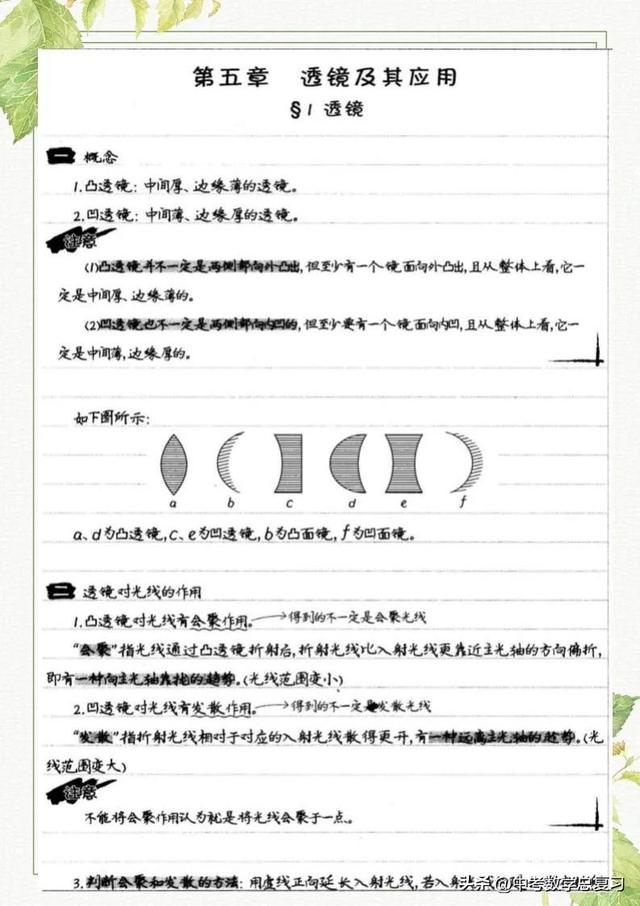 第五章 透镜及其应用
§1 透镜
一 概念
1.凸透镜：中间厚、边缘薄的透镜。
2.凹透镜：中间薄、边缘厚的透镜。
注意
(1)凸透镜并不一定是两侧都向外凸出,但至少有一个镜面向外凸出,且从整体上看,它一
定是中间厚、边缘薄的。
(2)凹透镜也不一定是两侧都向内凹的,但至少要有一个镜面向内凹,且从整体上看,它一
定是中间薄,边缘厚的。
如下图所示：
a b c d e f
a、d为凸透镜,c、e为凹透镜,b为凸面镜,f为凹面镜。
二 透镜对光线的作用
1.凸透镜对光线有会聚作用。→得到的不一定是会聚光线
“会聚”指光线通过凸透镜折射后,折射光线比入射光线更靠近主光轴的方向偏折,
即有一种向主光轴靠拢的趋势。(光线范围变小)
2.凹透镜对光线有发散作用。→得到的不一定是发散光线
“发散”指折射光线相对于对应的入射光线散得更开,有一种远离主光轴的趋势。(光
线范围变大)
注意
不能将会聚作用认为就是将光线会聚于一点。
3.判断会聚和发散的方法：用虚线正向延长入射光线,若入射
头条@中考数学总复习